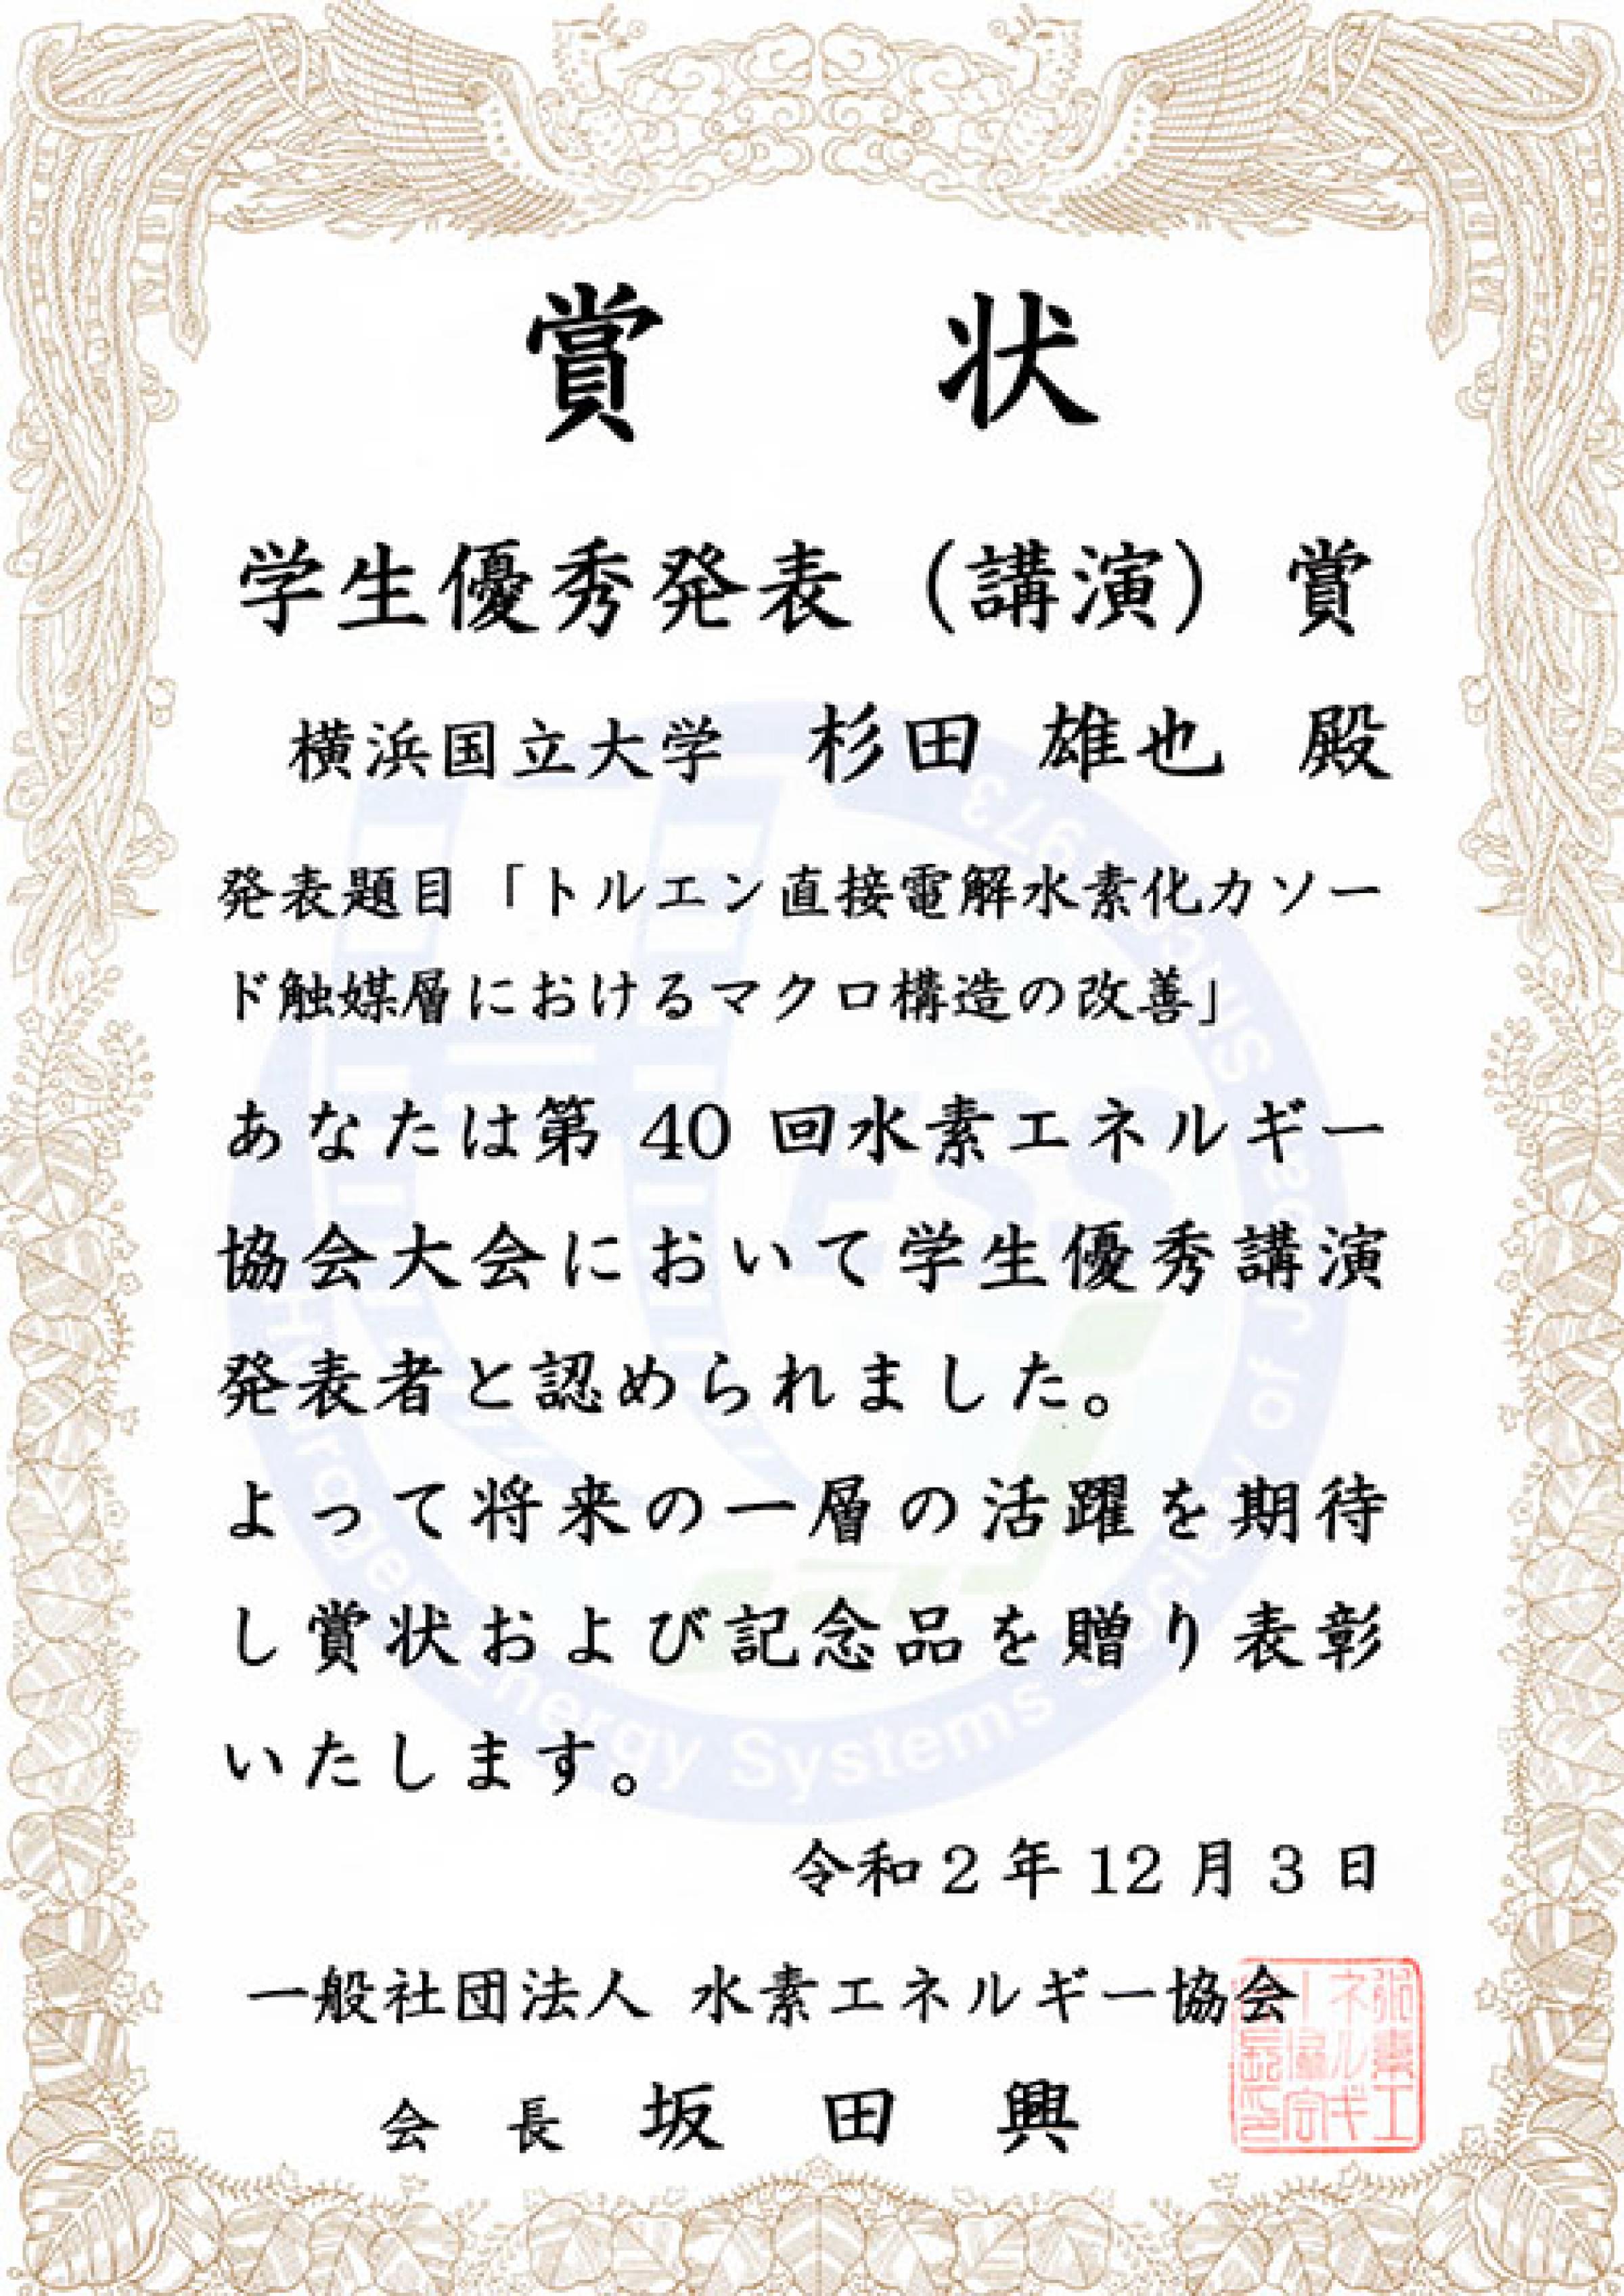 賞 状
学生優秀発表（講演）賞
横浜国立大学 杉田 雄也 殿
発表題目「トルエン直接電解水素化カソー
ド触媒層におけるマクロ構造の改善」
あなたは第 40 回水素エネルギー
協会大会において学生優秀講演
発表者と認められました。
よって将来の一層の活躍を期待
し賞状および記念品を贈り表彰
いたします。
令和２年 12 月 3 日
一般社団法人 水素エネルギー協会
会 長 坂 田 興
水素エネルギー協会長印
Hydrogen Energy Systems Society of Japan
Since 1973
HESS